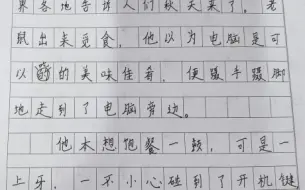 界各地告诉人们秋天来了，老
鼠出来觅食，他以为电脑是可
以啃的美味佳肴，便蹑手蹑脚
地走到了电脑旁边。
他本想饱餐一顿，可是一
上牙，一不小心碰到了开机键